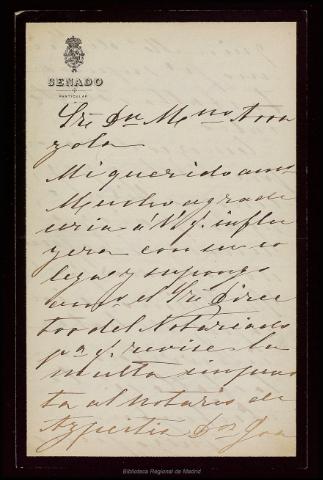 SENADO
PARTICULAR
Sr. Dn. Mno. Arra
zola
Mi querido amo.
Mucho agrade
ceria á V. q. influ
yera con su co
lega y supongo
amo. el Sr. Direc
tor del Notariado
pa. q. revise la
multa impues
ta al Notario de
Azpeitia Dn. Joa
Biblioteca Regional de Madrid